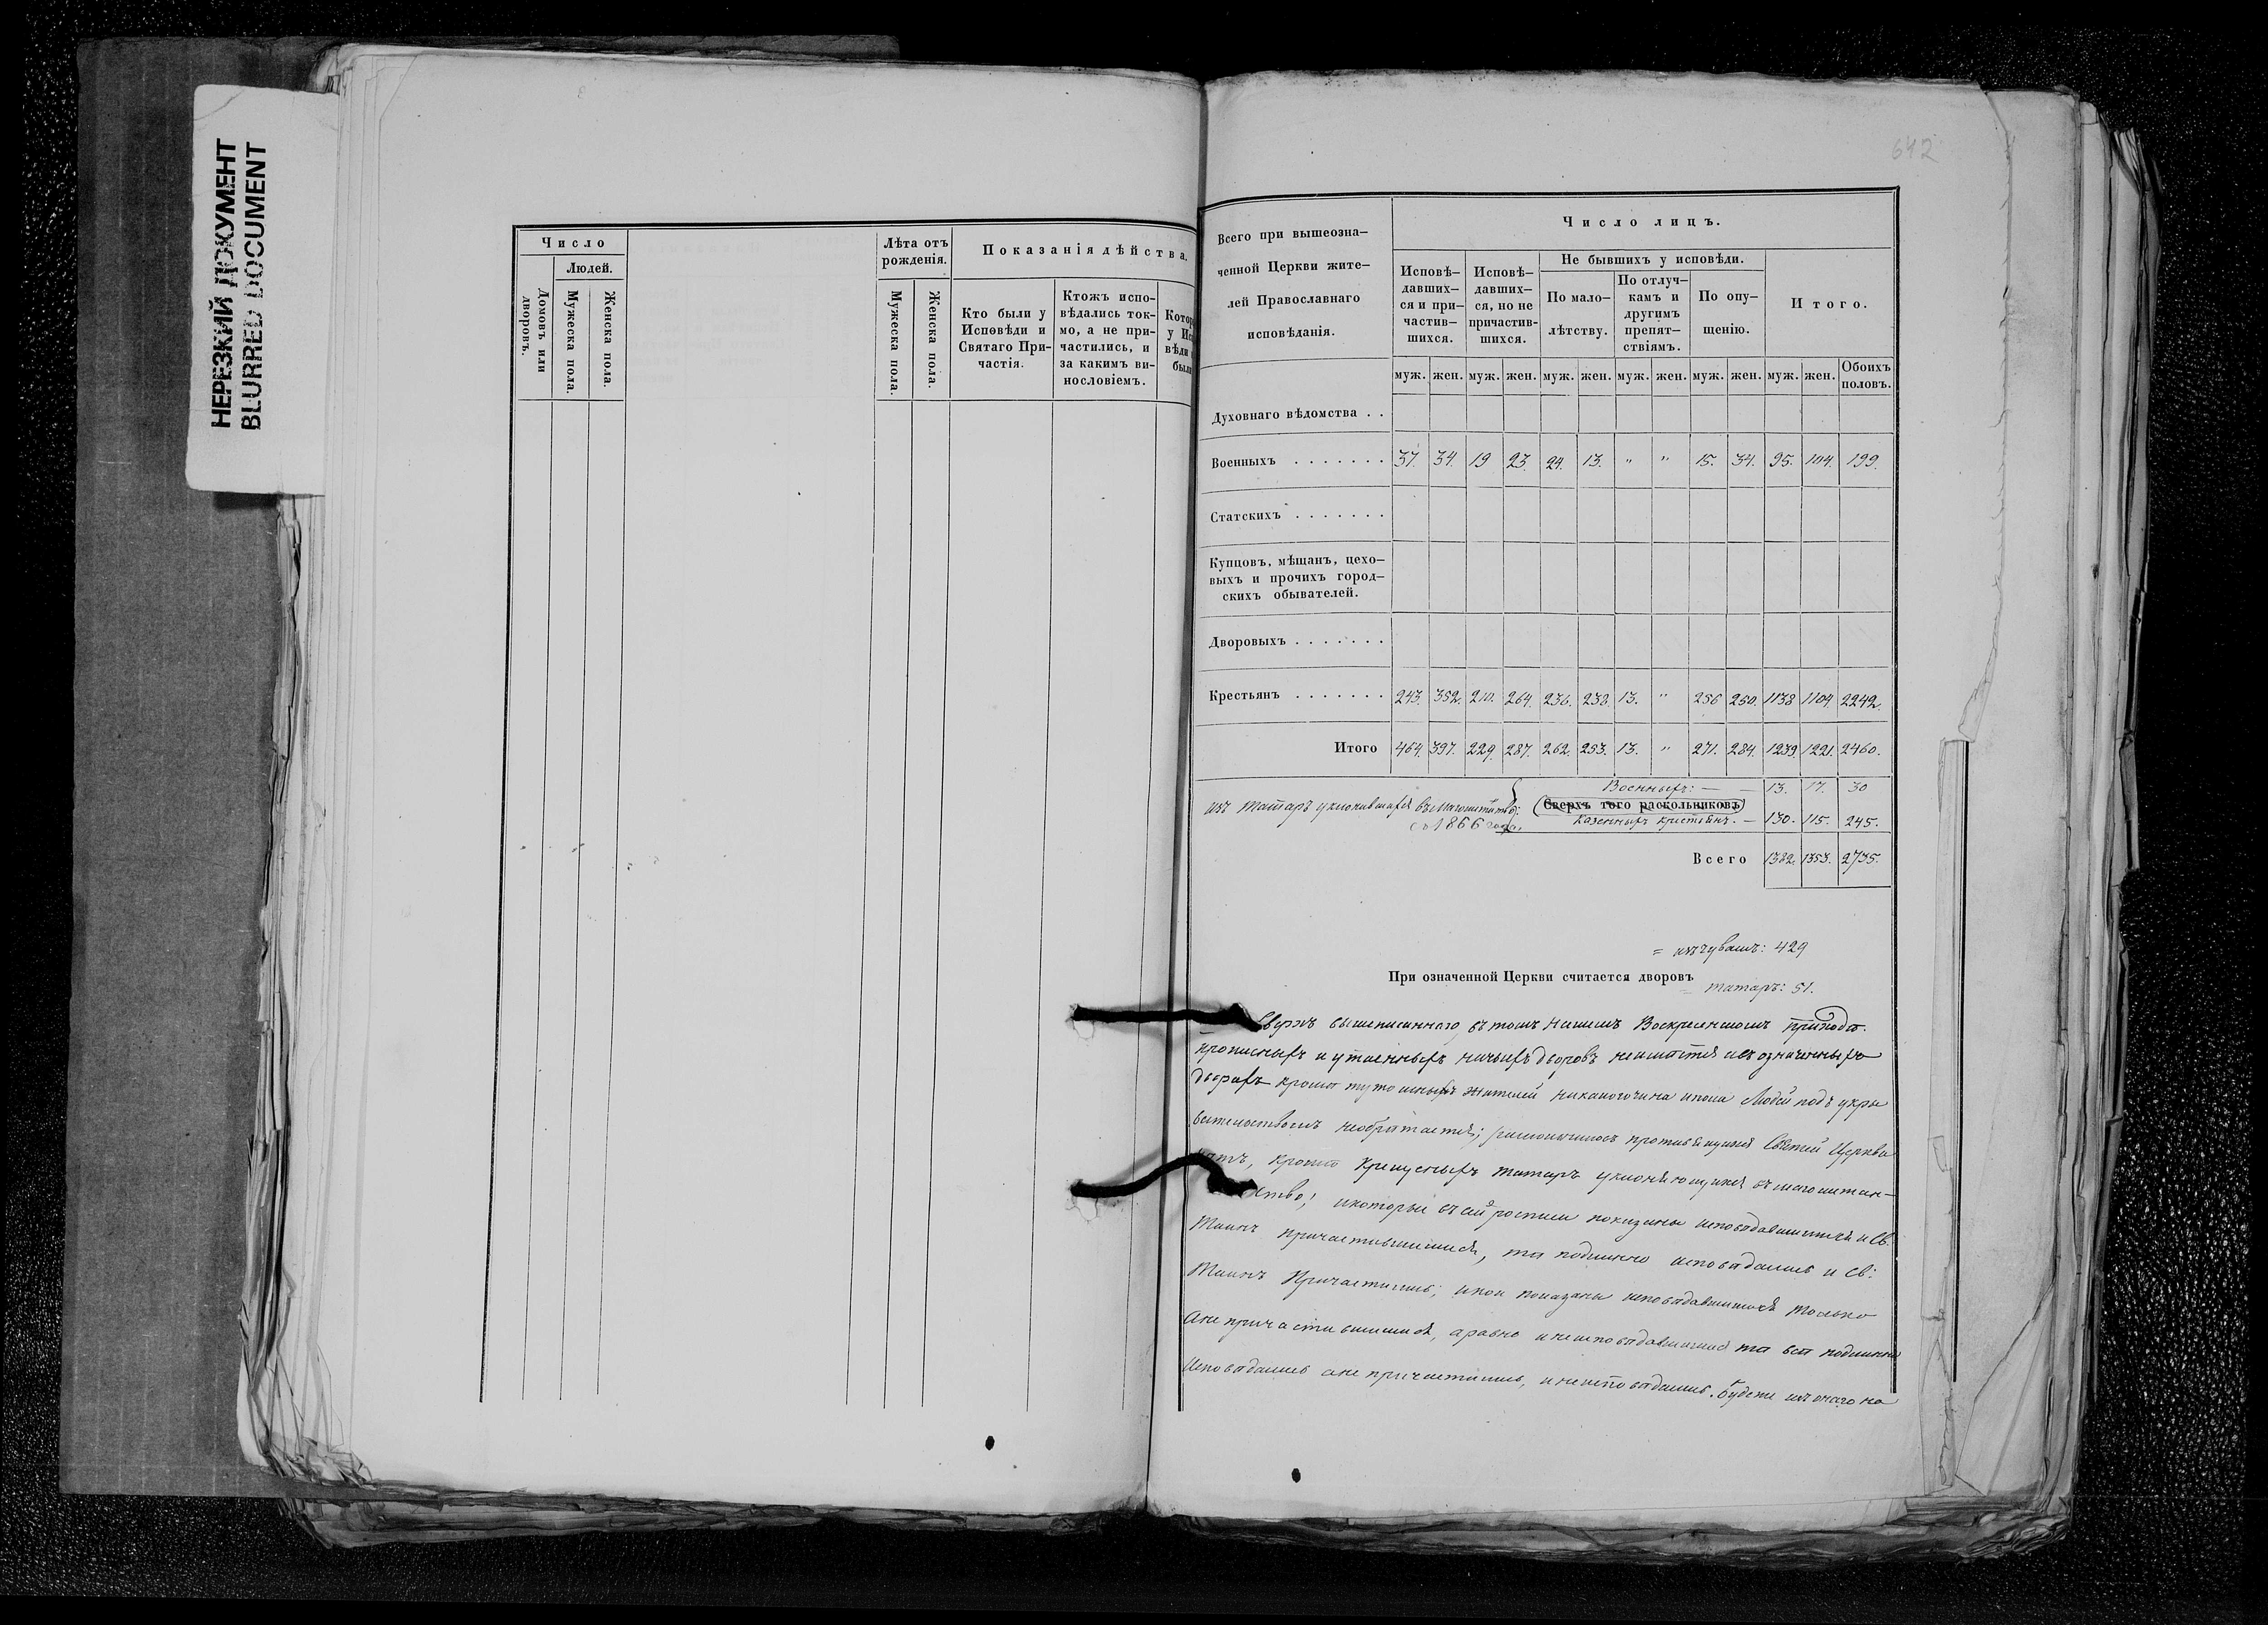 НЕРЕЗКИЙ ДОКУМЕНТ
BLURRED DOCUMENT
Число
Людей.
Домовъ или дворовъ.
Мужеска пола.
Женска пола.
Лѣта отъ рожденія.
Мужеска пола.
Женска пола.
Показанія дѣйства.
Кто были у Исповѣди и Святаго Причастія.
Ктожъ исповѣдались токмо, а не причастились, и за какимъ винословіемъ.
Котор
у Исп
вѣди
были
642
Всего при вышеозна-
ченной Церкви жите-
лей Православнаго
исповѣданія.
Число лицъ.
Исповѣ-
давших-
ся и при-
частив-
шихся.
Исповѣ-
давших-
ся, но не
причастив-
шихся.
Не бывшихъ у исповѣди.
По мало-
лѣтству.
По отлуч-
камъ и
другимъ
препят-
ствіямъ.
По опу-
щенію.
Итого.
муж. жен. муж. жен. муж. жен. муж. жен. муж. жен. муж. жен. Обоихъ половъ.
Духовнаго вѣдомства . .
Военныхъ . . . . . . . 37. 34. 19 23 24. 13. " " 15. 34. 95. 104. 199.
Статскихъ . . . . . . .
Купцовъ, мѣщанъ, цехо-
выхъ и прочихъ город-
скихъ обывателей.
Дворовыхъ . . . . . . .
Крестьянъ . . . . . . . 243. 352. 210. 264. 236. 238. 13. " 256 250. 1138 1104. 2242.
Итого 464. 397. 229. 287. 262. 253. 13. " 271. 284. 1239. 1221. 2460.
Военныхъ: — — 13. 17. 30
изъ Татаръ уклонившихся въ Магометанство: Сверхъ того раскольниковъ
съ 1866 года, Казенныхъ крестьянъ. — 130. 115. 245.
Всего 1382. 1353. 2735.
= изъ чувашъ: 429
При означенной Церкви считается дворовъ
= татаръ: 51.
Сверхъ вышеписаннаго, въ томъ нашемъ Воскресенскомъ приходѣ
прописныхъ и утаенныхъ ничьихъ дворовъ неимѣется и въ означенныхъ
дворахъ кромѣ тутошныхъ жителей никакогочина и пола Людей подъ укры
вательствомъ необрѣтается; раскольниковъ противящихся Святой Церкви
нѣтъ, кромѣ крещеныхъ татаръ уклоняющихся въ магометан-
ство; и которые въ сей росписи показаны исповѣдавшимися и Св.
Таинъ причастившимися, тѣ подлинно исповѣдались и Св:
Таинъ Причастились; и кои показаны исповѣдавшимися только
А не причастившимися, а равно и неисповѣдавшимися тѣ всѣ подлинно
Исповѣдались а не причастились, и неисповѣдались. Будеже изъ онаго на